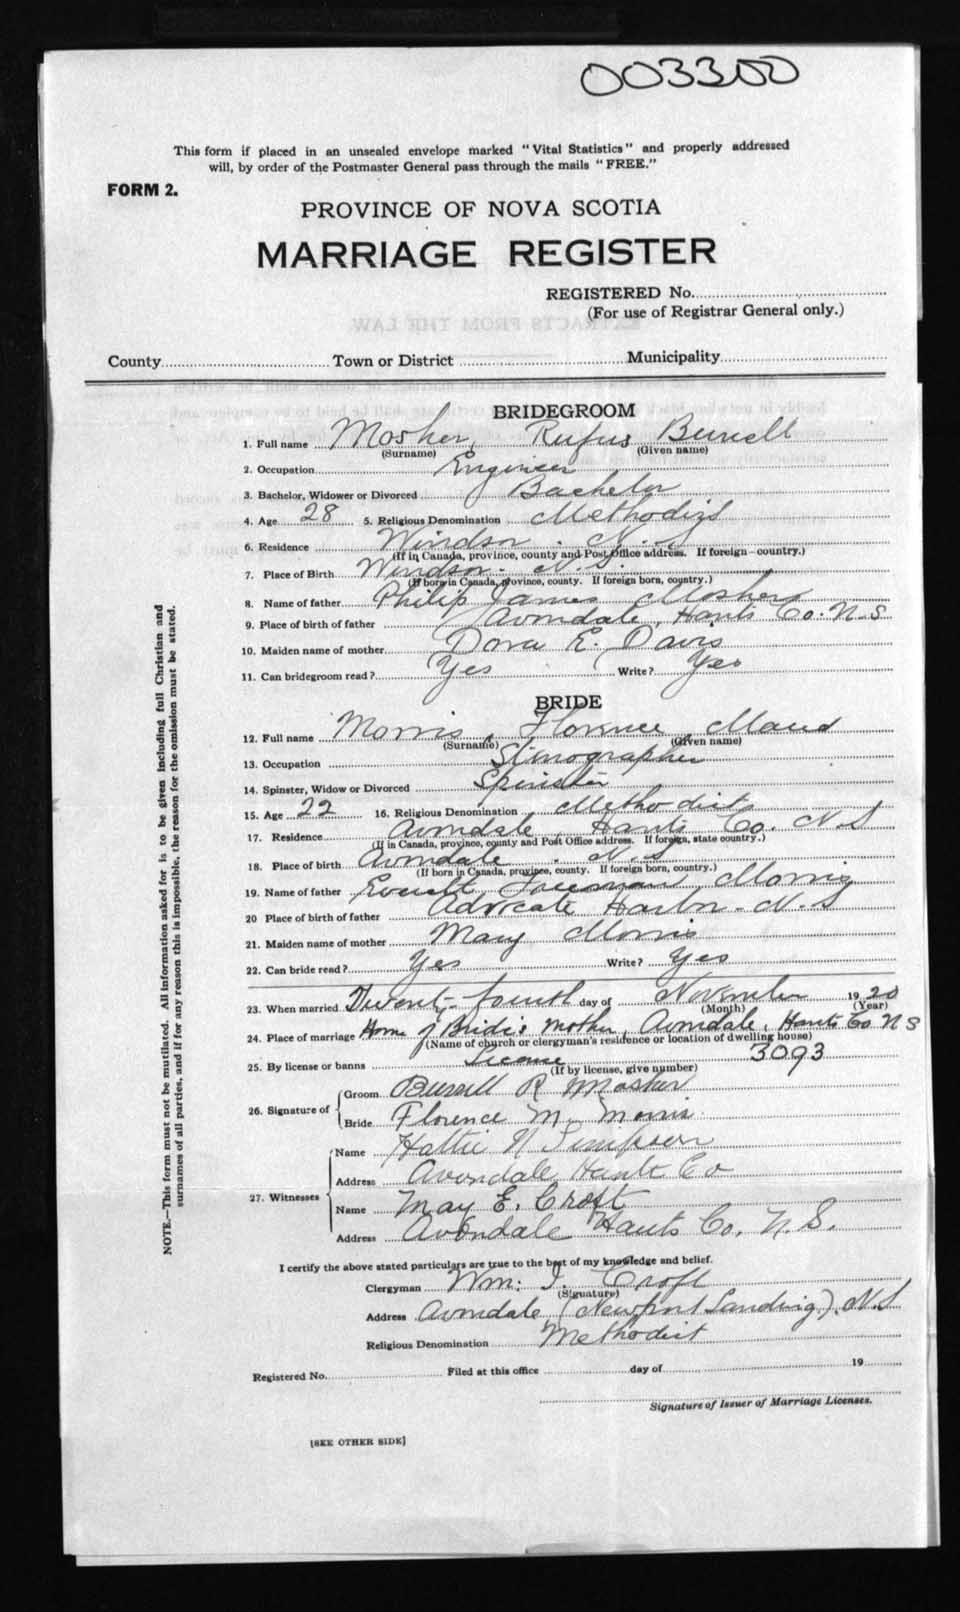 003300
This form if placed in an unsealed envelope marked "Vital Statistics" and properly addressed
will, by order of the Postmaster General pass through the mails "FREE."
FORM 2.
PROVINCE OF NOVA SCOTIA
MARRIAGE REGISTER
REGISTERED No.
(For use of Registrar General only.)
EXTRACTS FROM THE LAW.
County Town or District Municipality
BRIDEGROOM
1. Full name Mosher, Rufus Burrell
(Surname) (Given name)
2. Occupation Engineer
3. Bachelor, Widower or Divorced Bachelor
4. Age 28 5. Religious Denomination Methodist
6. Residence Windsor. N.S.
(If in Canada, province, county and Post Office address. If foreign—country.)
7. Place of Birth Windsor. N.S.
(If born in Canada, province, county. If foreign born, country.)
8. Name of father Philip James Mosher
9. Place of birth of father Avondale, Hants Co. N.S
10. Maiden name of mother Dora E. Davis
11. Can bridegroom read? Yes Write? Yes
BRIDE
12. Full name Morris, Florence Maud
(Surname) (Given name)
13. Occupation Stenographer
14. Spinster, Widow or Divorced Spinster
15. Age 22 16. Religious Denomination Methodist
17. Residence Avondale, Hants Co. N.S
(If in Canada, province, county and Post Office address. If foreign, state country.)
18. Place of birth Avondale. N.S
(If born in Canada, province, county. If foreign born, country.)
19. Name of father Everett Freeman Morris
20 Place of birth of father Advocate Harbor - N.S
21. Maiden name of mother Mary Morris
22. Can bride read? Yes Write? Yes
23. When married Twenty-fourth day of November 1920
(Month) (Year)
24. Place of marriage Home of Bride's mother, Avondale, Hants Co N S
(Name of church or clergyman's residence or location of dwelling house)
25. By license or banns License 3093
(If by license, give number)
26. Signature of Groom Burrell R Mosher
Bride Florence M. Morris.
27. Witnesses Name Hattie N Simpson
Address Avondale Hants Co
Name May E. Croft
Address Avondale Hants Co. N.S.
I certify the above stated particulars are true to the best of my knowledge and belief.
Clergyman Wm. I. Croft
(Signature)
Address Avondale (Newport Landing). N.S
Religious Denomination Methodist
Registered No. Filed at this office day of 19
Signature of Issuer of Marriage Licenses.
[SEE OTHER SIDE]
NOTE.—This form must not be mutilated. All information asked for is to be given including full Christian and
surnames of all parties, and if for any reason this is impossible, the reason for the omission must be stated.